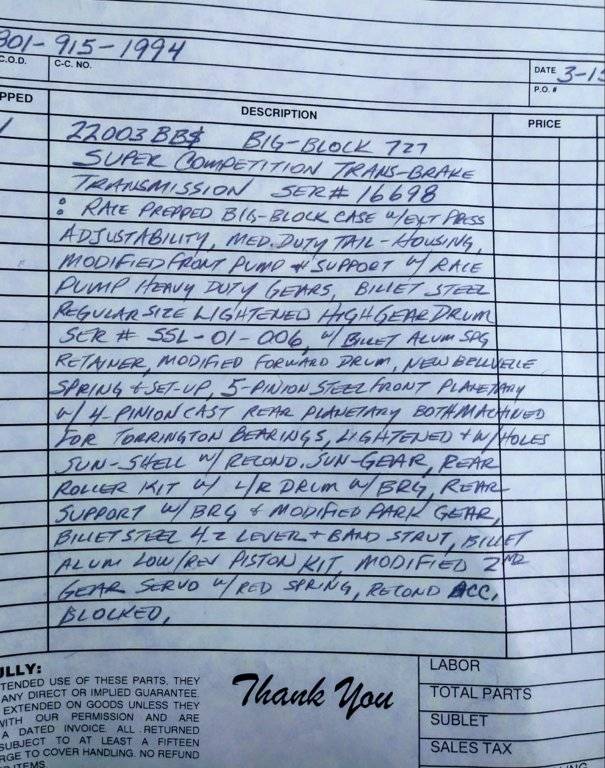 801-915-1994
C.O.D. C-C. NO.
DATE 3-15
P.O. #
PPED DESCRIPTION PRICE
1 22003BB$ BIG-BLOCK 727
SUPER COMPETITION TRANS-BRAKE
TRANSMISSION SER# 16698
: RACE PREPPED BIG-BLOCK CASE W/EXT PASS
ADJUSTABILITY, MED. DUTY TAIL-HOUSING,
MODIFIED FRONT PUMP & SUPPORT W/ RACE
PUMP HEAVY DUTY GEARS, BILLET STEEL
REGULAR SIZE LIGHTENED HIGH GEAR DRUM
SER # SSL-01-006, W/ BILLET ALUM SPG
RETAINER, MODIFIED FORWARD DRUM, NEW BELLVELLE
SPRING & SET-UP, 5-PINION STEEL FRONT PLANETARY
W/ 4-PINION CAST REAR PLANETARY BOTH MACHINED
FOR TORRINGTON BEARINGS, LIGHTENED + W/HOLES
SUN-SHELL W/ RECOND. SUN-GEAR, REAR
ROLLER KIT W/ L/R DRUM W/ BRG, REAR
SUPPORT W/ BRG & MODIFIED PARK GEAR,
BILLET STEEL 4.2 LEVER + BAND STRUT, BILLET
ALUM LOW/REV PISTON KIT, MODIFIED 2ND
GEAR SERVO W/ RED SPRING, RECOND ACC.
BLOCKED,
ULLY:
TENDED USE OF THESE PARTS. THEY
ANY DIRECT OR IMPLIED GUARANTEE.
EXTENDED ON GOODS UNLESS THEY
WITH OUR PERMISSION AND ARE
A DATED INVOICE. ALL RETURNED
SUBJECT TO AT LEAST A FIFTEEN
RGE TO COVER HANDLING. NO REFUND
ITEMS
Thank You
LABOR
TOTAL PARTS
SUBLET
SALES TAX